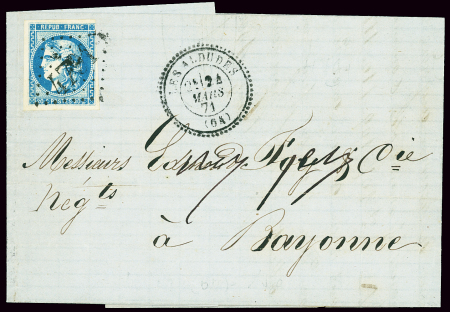 REPUB. FRANC.
LES ALDUDES
24
MARS
71
(64)
Messieurs
& Cie
Négts
à Bayonne